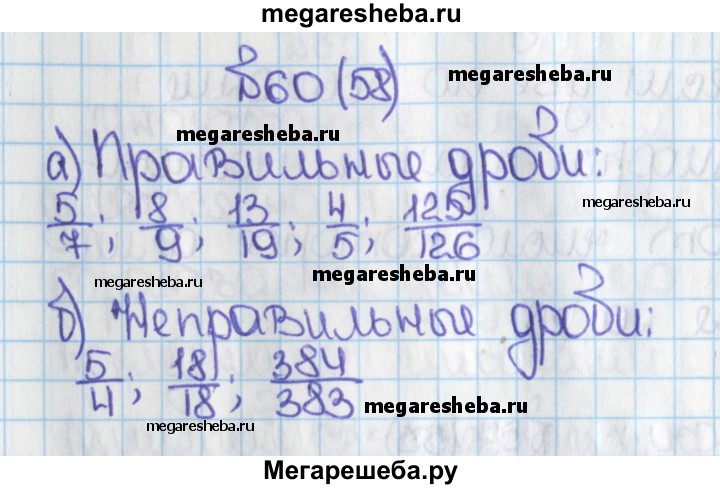 megaresheba.ru
№60 (58) megaresheba.ru
megaresheba.ru
а) Правильные дроби:
megaresheba.ru
5/7; 8/9; 13/19; 4/5; 125/126
megaresheba.ru megaresheba.ru
б) Неправильные дроби:
5/4; 18/18; 384/383
megaresheba.ru megaresheba.ru megaresheba.ru
Мегарешеба.ру